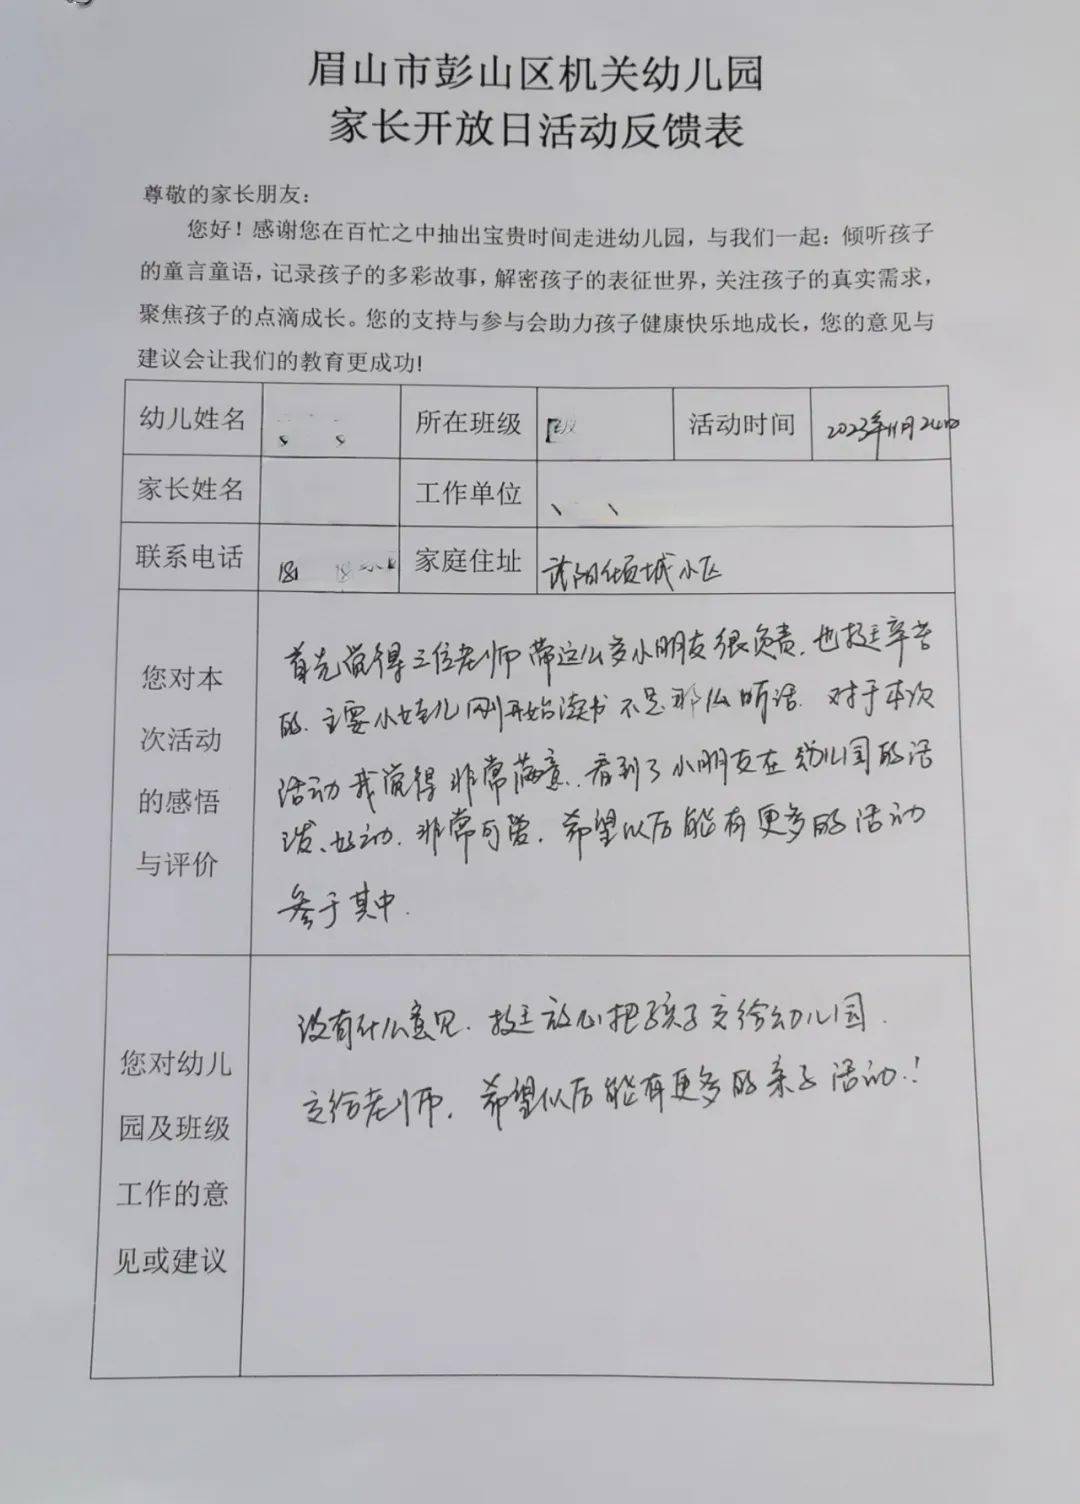 眉山市彭山区机关幼儿园
家长开放日活动反馈表
尊敬的家长朋友：
您好！感谢您在百忙之中抽出宝贵时间走进幼儿园，与我们一起：倾听孩子
的童言童语，记录孩子的多彩故事，解密孩子的表征世界，关注孩子的真实需求，
聚焦孩子的点滴成长。您的支持与参与会助力孩子健康快乐地成长，您的意见与
建议会让我们的教育更成功！
幼儿姓名 所在班级 级 活动时间 2023年11月24日
家长姓名 工作单位
联系电话 181 家庭住址 阳倾城小区
您对本
次活动
的感悟
与评价
首先觉得三位老师带这么多小朋友很负责，也挺辛苦
的。主要小娃儿刚开始读书不是那么听话。对于本次
活动我觉得非常满意，看到了小朋友在幼儿园的活
泼、好动，非常可爱，希望以后能有更多的活动
参于其中.
您对幼儿
园及班级
工作的意
见或建议
没有什么意见，挺放心把孩子交给幼儿园.
交给老师，希望以后能有更多的亲子活动！